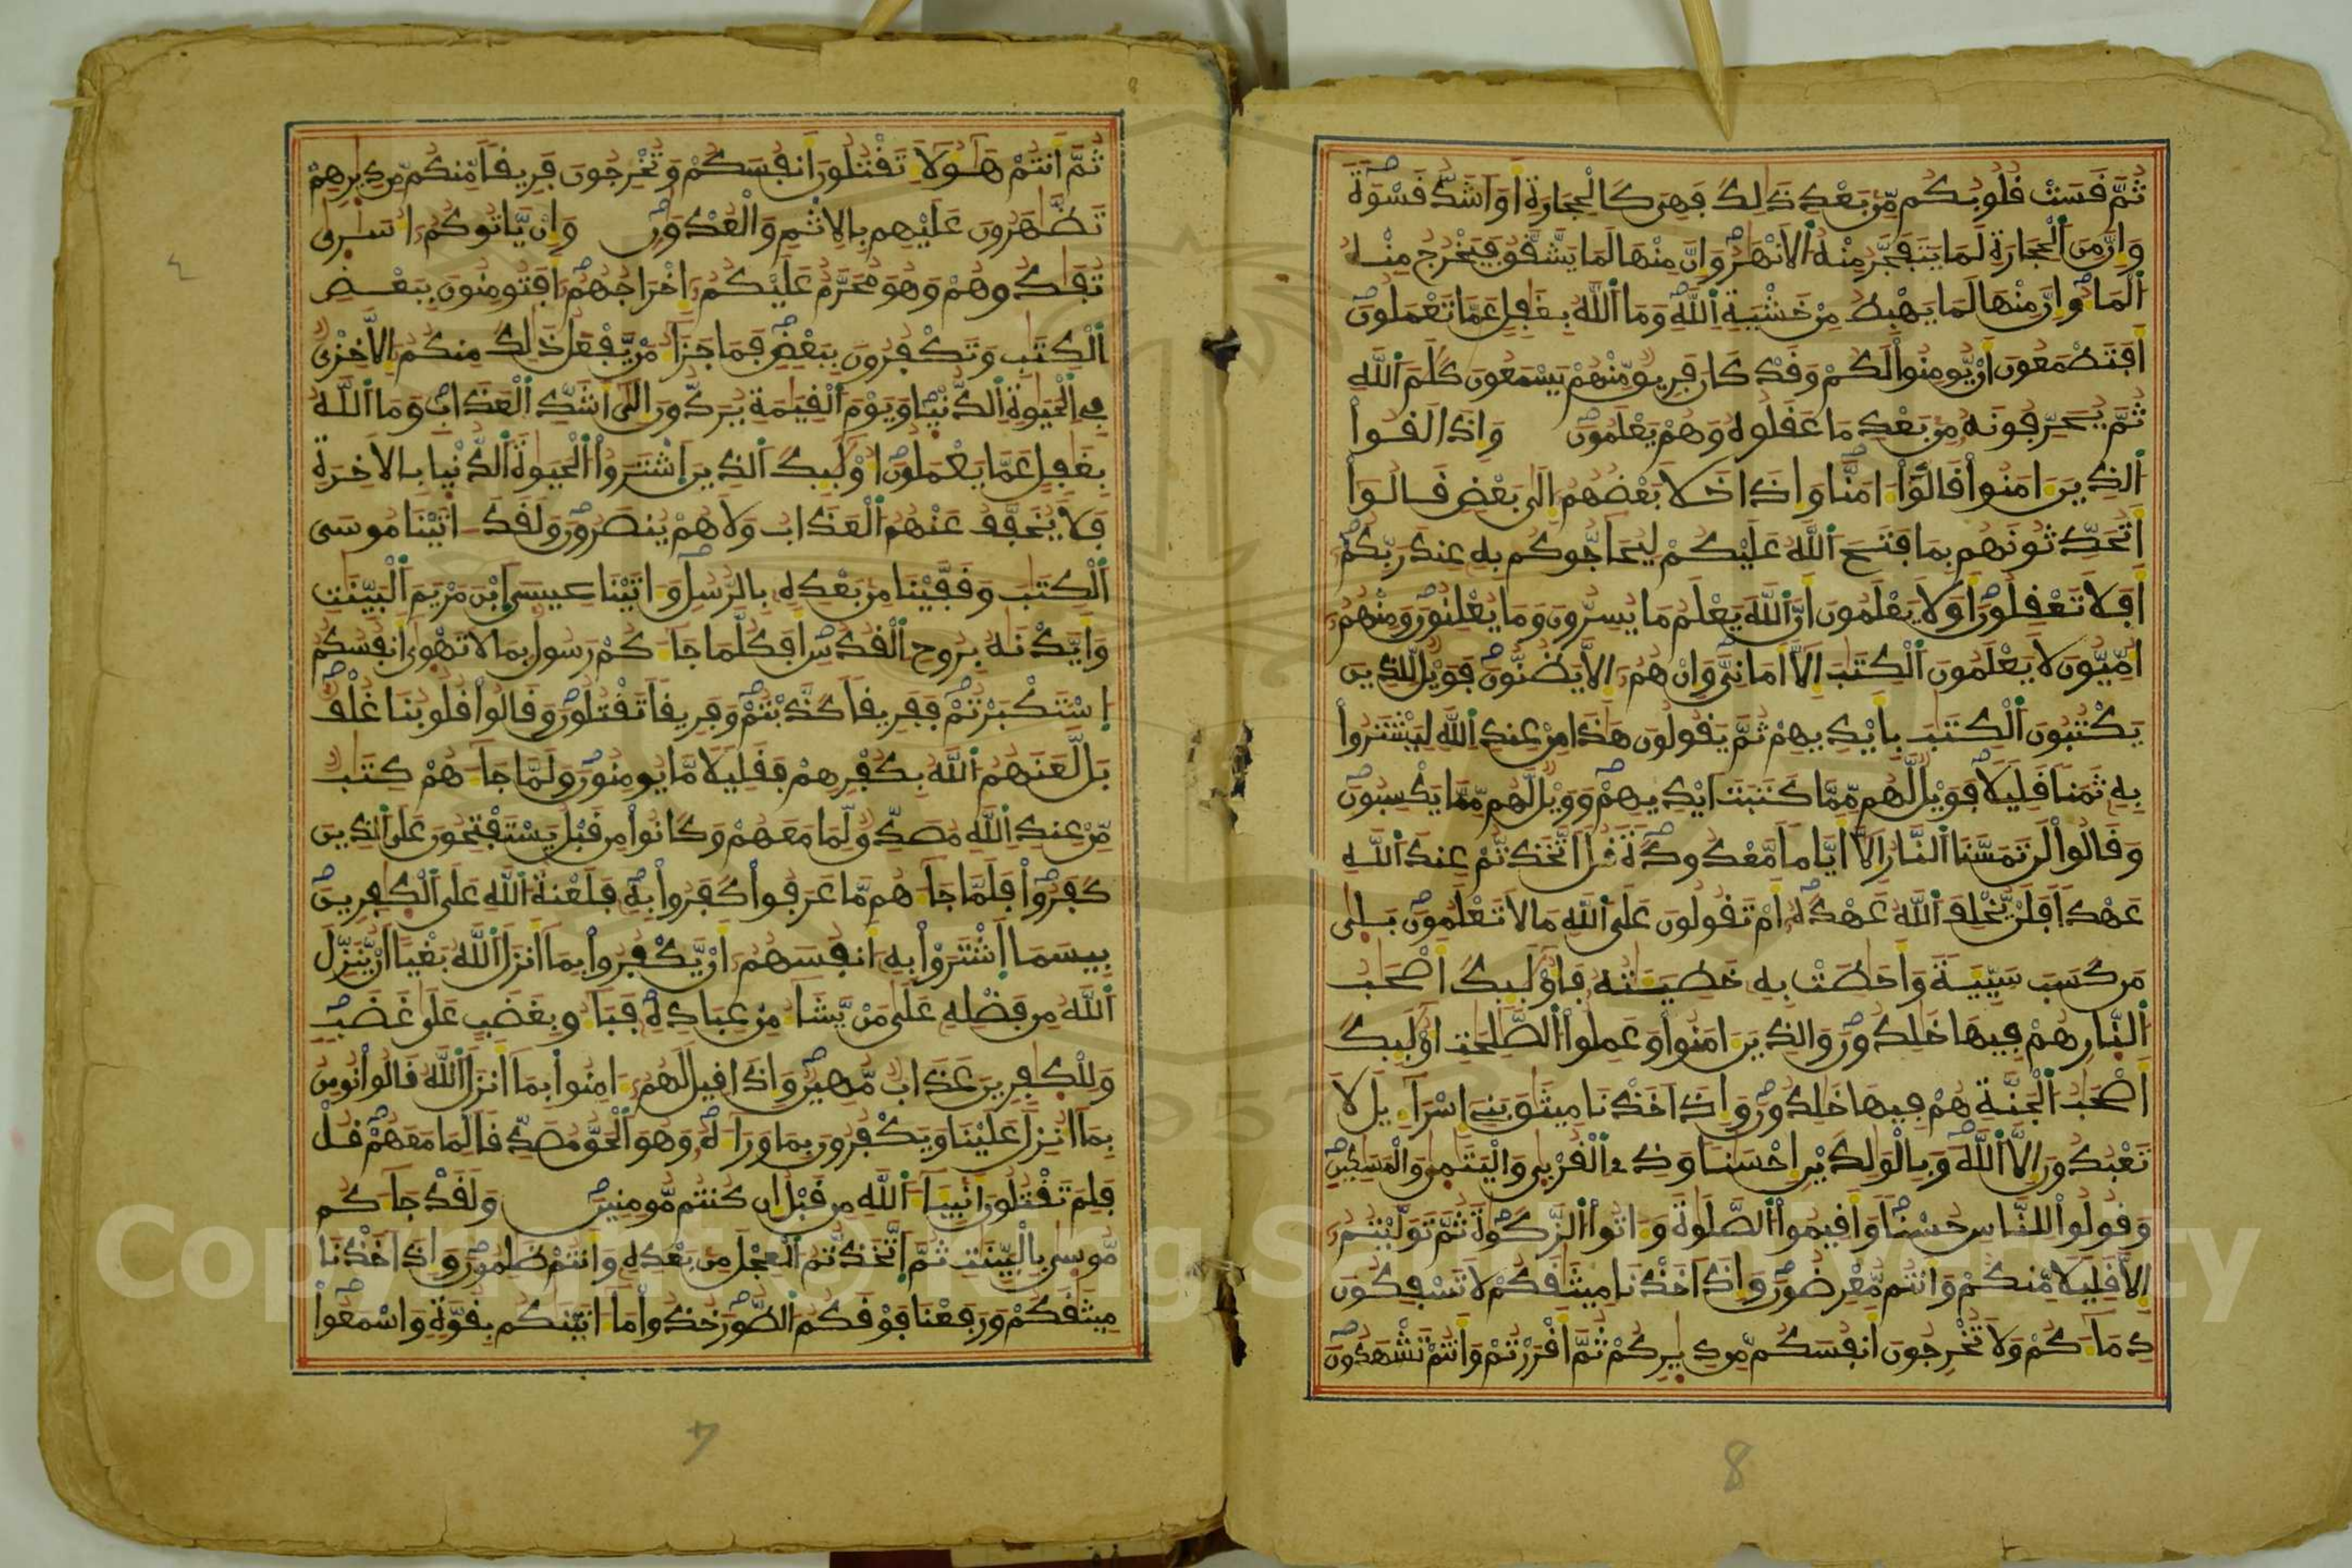 ثم قست قلوبكم من بعد ذلك فهي كالحجارة او اشد قسوة
وان من الحجارة لما يتفجر منه الانهر وان منها لما يشقق فيخرج منه
الما وان منها لما يهبط من خشية الله وما الله بغفل عما تعملون
افتطمعون ان يومنوا لكم وقد كان فريق منهم يسمعون كلم الله
ثم يحرفونه من بعد ما عقلوه وهم يعلمون واذا لقوا
الذين امنوا قالوا امنا واذا خلا بعضهم الى بعض قالوا
اتحدثونهم بما فتح الله عليكم ليحاجوكم به عند ربكم
افلا تعقلون اولا يعلمون ان الله يعلم ما يسرون وما يعلنون ومنهم
اميون لا يعلمون الكتب الا اماني وان هم الا يظنون فويل للذين
يكتبون الكتب بايديهم ثم يقولون هذا من عند الله ليشتروا
به ثمنا قليلا فويل لهم مما كتبت ايديهم وويل لهم مما يكسبون
وقالوا لن تمسنا النار الا اياما معدودة قل اتخذتم عند الله
عهدا فلن يخلف الله عهده ام تقولون على الله ما لا تعلمون بلى
من كسب سيية واحطت به خطيـته فاوليك اصحب
النار هم فيها خلدون والذين امنوا وعملوا الصلحت اوليك
اصحب الجنة هم فيها خلدون واذ اخذنا ميثق بني اسراءيل لا
تعبدون الا الله وبالولدين احسنا وذي القربى واليتمى والمسكين
وقولوا للناس حسنا واقيموا الصلوة واتوا الزكوة ثم توليتم
الا قليلا منكم وانتم معرضون واذ اخذنا ميثقكم لا تسفكون
دماكم ولا تخرجون انفسكم من ديركم ثم اقررتم وانتم تشهدون
8
ثم انتم هولا تقتلون انفسكم وتخرجون فريقا منكم من ديرهم
تظهرون عليهم بالاثم والعدون وان ياتوكم اسرى
تفدوهم وهو محرم عليكم اخراجهم افتومنون ببعض
الكتب وتكفرون ببعض فما جزا من يفعل ذلك منكم الا خزي
في الحيوة الدنيا ويوم القيمة يردون الى اشد العذاب وما الله
بغفل عما يعملون اوليك الذين اشتروا الحيوة الدنيا بالاخرة
فلا يخفف عنهم العذاب ولا هم ينصرون ولقد اتينا موسى
الكتب وقفينا من بعده بالرسل واتينا عيسى ابن مريم البينت
وايدنه بروح القدس افكلما جاكم رسول بما لا تهوى انفسكم
استكبرتم ففريقا كذبتم وفريقا تقتلون وقالوا قلوبنا غلف
بل لعنهم الله بكفرهم فقليلا ما يومنون ولما جاهم كتب
من عند الله مصدق لما معهم وكانوا من قبل يستفتحون على الذين
كفروا فلما جاهم ما عرفوا كفروا به فلعنة الله على الكفرين
بيسما اشتروا به انفسهم ان يكفروا بما انزل الله بغيا ان ينزل
الله من فضله على من يشا من عباده فباو بغضب على غضب
وللكفرين عذاب مهين واذا قيل لهم امنوا بما انزل الله قالوا نومن
بما انزل علينا ويكفرون بما وراه وهو الحق مصدقا لما معهم قل
فلم تقتلون انبيا الله من قبل ان كنتم مومنين ولقد جاكم
موسى بالبينت ثم اتخذتم العجل من بعده وانتم ظلمون واذ اخذنا
ميثقكم ورفعنا فوقكم الطور خذوا ما اتينكم بقوة واسمعوا
Copyright © King Saud University